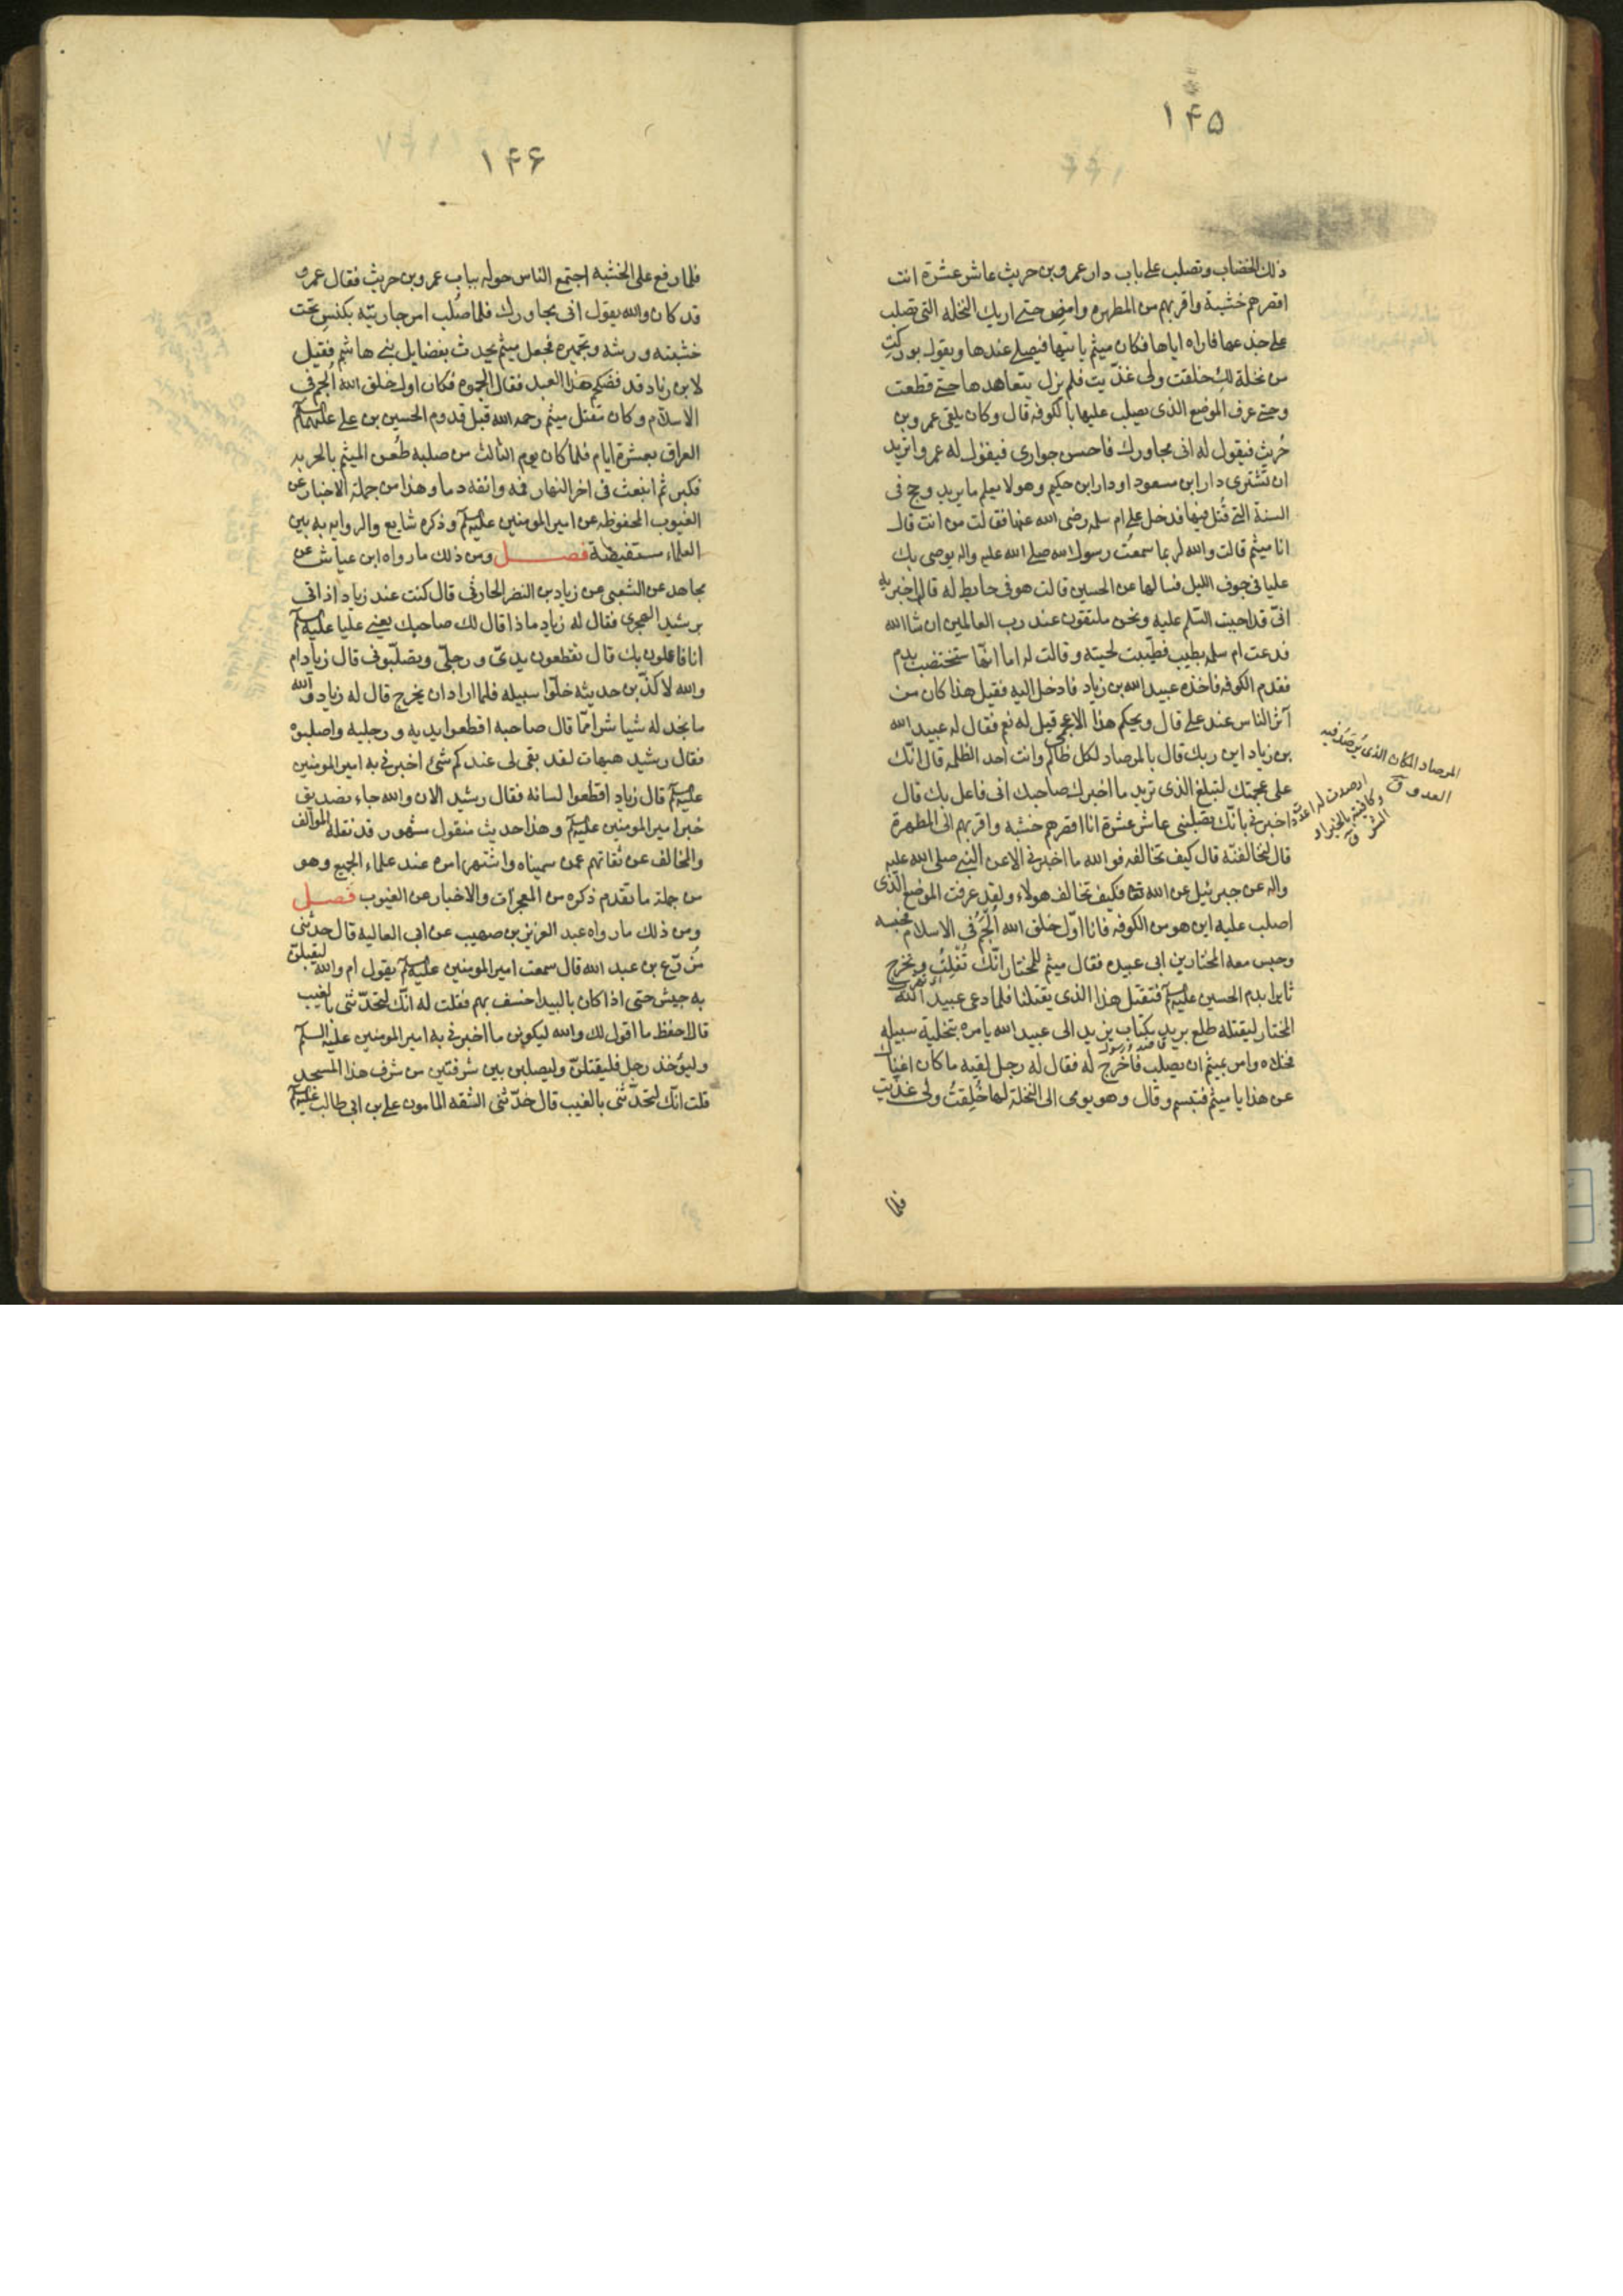 ۱۴۵
ذلك الخضاب وتصلب على باب دار عمرو بن حريث عاشر عشرة انت
اقصرهم خشبة واقربهم من المطهره وامض حتى اريك النخله التي تصلب
على جذعها فاراه اياها فكان ميثم ياتيها فيصلي عندها ويقول بوركت
من نخلة لك خلقت ولى غذيت فلم يزل يتعاهدها حتى قطعت
وحتى عرف الموضع الذى يصلب عليها بالكوفه قال وكان يلقى عمرو بن
حُريث فيقول له انى مجاورك فاحسن جوارى فيقول له عمرو اتريد
ان تشترى دار ابن مسعود او دار ابن حكيم وهو لا يعلم ما يريد وحج فى
السنة التى قُتل فيها فدخل على ام سلمه رضى الله عنها فقالت من انت قال
انا ميثم قالت والله لربما سمعتُ رسول الله صلى الله عليه واله يوصى بك
عليا فى جوف الليل فسالها عن الحسين قالت هو فى حايط له قال اخبريه
انّى قد احببت السّلم عليه ونحن ملتقون عند رب العالمين ان شا الله
فدعت ام سلمه بطيب فطيّبت لحيته وقالت له اما انّها ستخضب بدم
فقدم الكوفه فاخذه عبيد الله بن زياد فادخل اليه فقيل هذا كان من
آثر الناس عند على قال ويحكم هذا الاعجمى قيل له نعم فقال له عبيد الله
بن زياد اين ربك قال بالمرصاد لكل ظالم وانت احد الظلمه قال انك
على عجمتك لتبلغ الذى تريد ما اخبرك صاحبك انى فاعل بك قال
اخبرنى بانّك تصلبنى عاشر عشرة انا اقصرهم خشبه واقربهم الى المطهرة
قال لنخالفنّه قال كيف تخالفه فو الله ما اخبرنى الا عن النبى صلى الله عليه
واله عن جبرئيل عن الله تعا فكيف تخالف هولاء ولقد عرفت الموضع الّذى
اصلب عليه اين هو من الكوفه فانا اوّل خلق الله اُلجَمُ فى الاسلام فحبسه
وحبس معه المختار بن ابى عبيده فقال ميثم للمختار انّك تُفْلِتُ وتخرج
ثايرا بدم الحسين عليه السلم فتقتل هذا الذى يقتلنا فلما دعى عبيد الله
المختار ليقتله طلع بريد بكتاب يزيد الى عبيد الله يامره بتخلية سبيله
فخلاه وامر بميثم ان يصلب فاُخرج له فقال له رجل لقيه ما كان اغناك
عن هذا يا ميثم فتبسم وقال وهو يومى الى النخلة لها خُلِقتُ ولى غذيت
المرصاد المكان الذى يُرصَد فيه
العدو ق
ارصدت له اعددت
وكافيته بالخير او
الشر ق
فلمّا
۱۴۶
فلما رفع على الخشبه اجتمع الناس حوله بباب عمرو بن حريث فقال عمرو
قد كان والله يقول انى مجاورك فلما صُلب امر جاريته بكنس تحت
خشبته ورشه وتجميره فجعل ميثم يحدث بفضايل بنى هاشم فقيل
لابن زياد قد فضحكم هذا العبد فقال الجموه فكان اول خلق الله اُلجم فى
الاسلام وكان مقتل ميثم رحمه الله قبل قدوم الحسين بن على عليهما السلم
العراق بعشرة ايام فلما كان يوم الثالث من صلبه طُعن الميثم بالحربه
فكبر ثم انبعث فى اخر النهار فمه وانفه دما وهذا من جملة الاخبار عن
الغيوب المحفوظه عن امير المومنين عليه السلم وذكره شايع والروايه به بين
العلماء مستفيضة فصل ومن ذلك ما رواه ابن عياش عن
مجاهد عن الشعبى عن زياد بن النضر الحارثى قال كنت عند زياد اذ اتى
برشيد الهجرى فقال له زياد ماذا قال لك صاحبك يعنى عليا عليه السلم
انا فاعلون بك قال تقطعون يدىّ ورجلىّ وتصلّبونى قال زياد ام
والله لاكذّبن حديثه خلّوا سبيله فلما اراد ان يخرج قال له زياد والله
ما نجد له شيا شرا ممّا قال صاحبه اقطعوا يديه ورجليه واصلبوه
فقال رشيد هيهات لقد بقى لى عندكم شئ اخبرنى به امير المومنين
عليه السلم قال زياد اقطعوا لسانه فقال رشيد الان والله جاء تصديق
خبر امير المومنين عليه السلم وهذا حديث منقول مشهور قد نقله الموالف
والمخالف عن ثقاتهم عمن سميناه واشتهر امره عند علماء الجميع وهو
من جملة ما تقدم ذكره من المعجزات والاخبار عن الغيوب فصل
ومن ذلك ما رواه عبد العزيز بن صهيب عن ابى العاليه قال حدثنى
مُزَرّع بن عبد الله قال سمعت امير المومنين عليه السلم يقول ام والله ليقبلنّ
به جيش حتى اذا كان بالبيدا خسف بهم فقلت له انّك لتحدّثنى بالغيب
قال احفظ ما اقول لك والله ليكونن ما اخبرنى به امير المومنين عليه السلم
وليوخذن رجل فليقتلنّ وليصلبن بين شرفتين من شرف هذا المسجد
قلت انّك لتحدّثنى بالغيب قال حَدّثنى الثقه المامون على بن ابى طالب عليه السلم